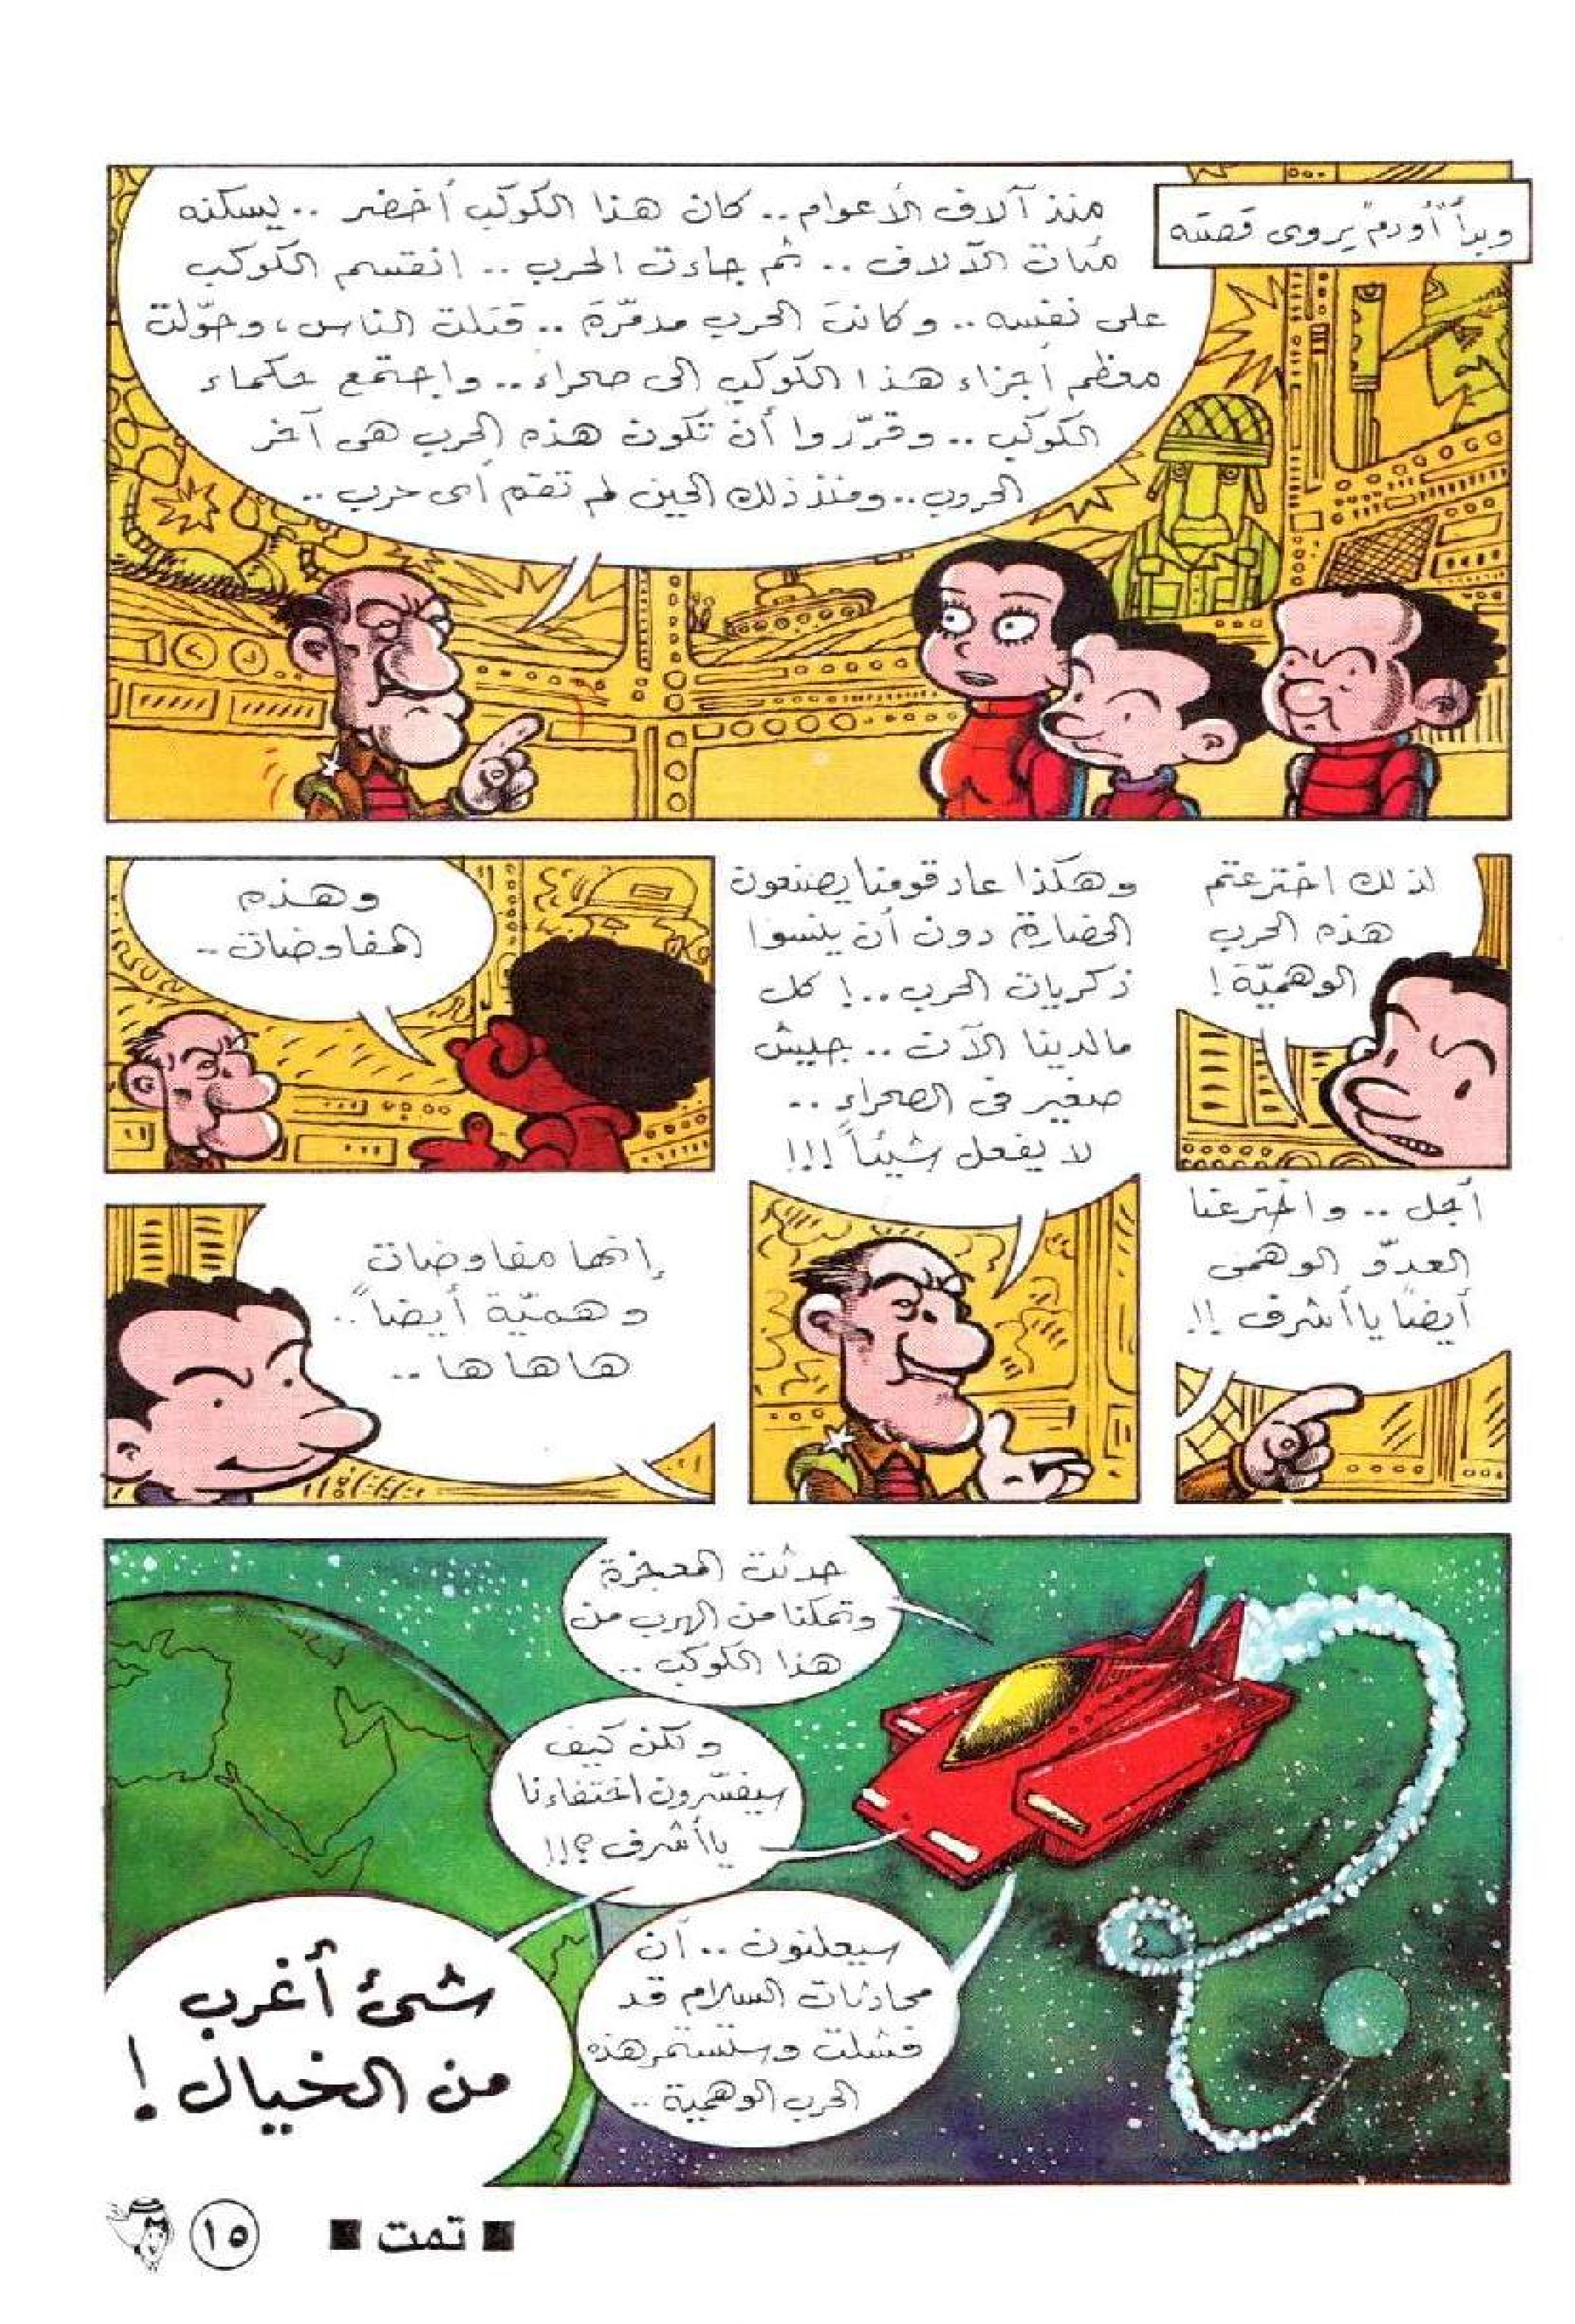 وبدأ "أودم" يروى قصته
منذ آلاف الأعوام.. كان هذا الكوكب أخضر .. يسكنه
مئات الآلاف .. ثم جاءت الحرب .. انقسم الكوكب
على نفسه .. وكانت الحرب مدمّرة .. قتلت الناس، وحوّلت
معظم أجزاء هذا الكوكب إلى صحراء.. واجتمع حكماء
الكوكب .. وقرّروا أن تكون هذه الحرب هى آخر
الحروب.. ومنذ ذلك الحين لم تقم أى حرب ..
لذلك اخترعتم
هذه الحرب
الوهميّة !
أجل .. واخترعنا
العدوّ الوهمى
أيضاً يا أشرف !!
وهكذا عاد قومنا يصنعون
الحضارة دون أن ينسوا
ذكريات الحرب ..! كل
مالدينا الآن .. جيش
صغير فى الصحراء ..
لا يفعل شيئاً !!!
وهذه
المفاوضات ..
إنها مفاوضات
وهميّة أيضاً ..
ها ها ها ..
حدثت المعجزة
وتمكنا من الهرب من
هذا الكوكب ..
ولكن كيف
سيفسّرون اختفاءنا
يا أشرف ؟!!
سيعلنون .. أن
محادثات السلام قد
فشلت وستستمر هذه
الحرب الوهمية ..
شئ أغرب
من الخيال !
■ تمت ■
١٥